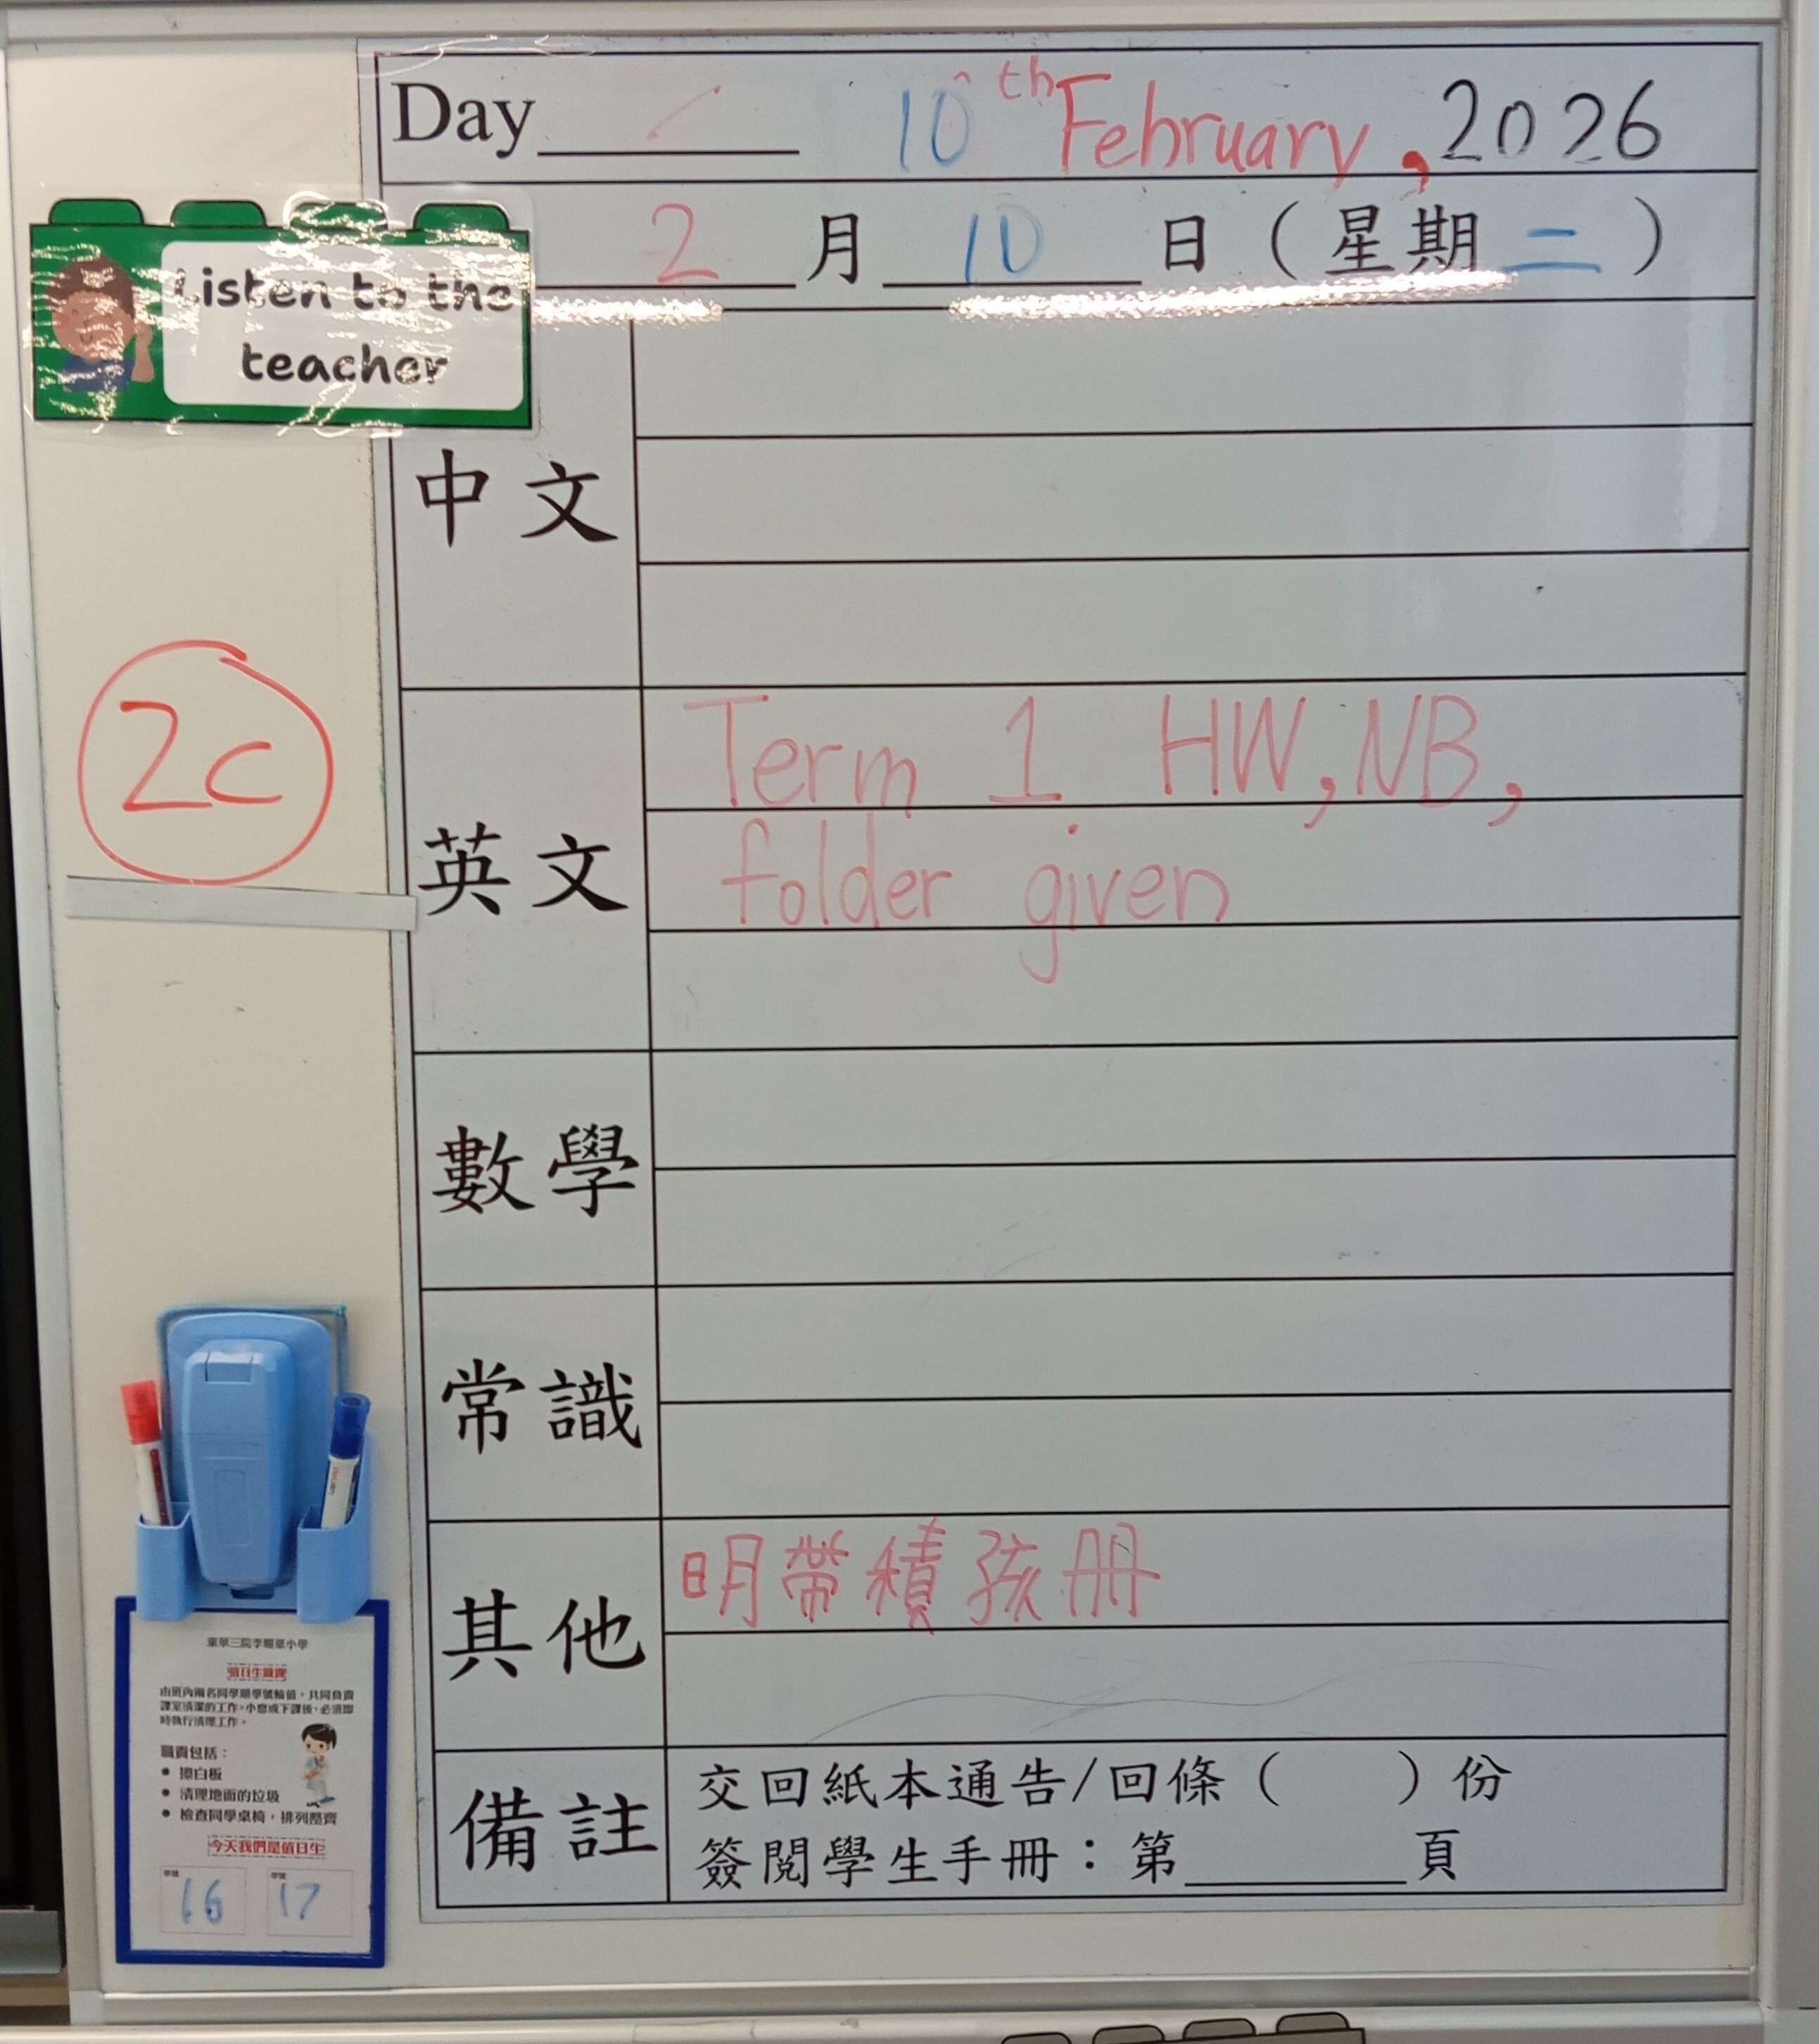 Day 10th February, 2026
2月10日（星期二）
Listen to the
teacher
中文
2c
英文
Term 1 HW, NB,
folder given
數學
常識
其他
明帶積孩册
備註
交回紙本通告/回條（ ）份
簽閱學生手冊：第 頁
值日生職責
由班內兩名同學順學號輪值，共同負責
課室清潔的工作。小息或下課後，必須即
時執行清理工作。
職責包括：
● 擦白板
● 清理地面的垃圾
● 檢查同學桌椅，排列整齊
今天我們是值日生
學號 學號
16 17